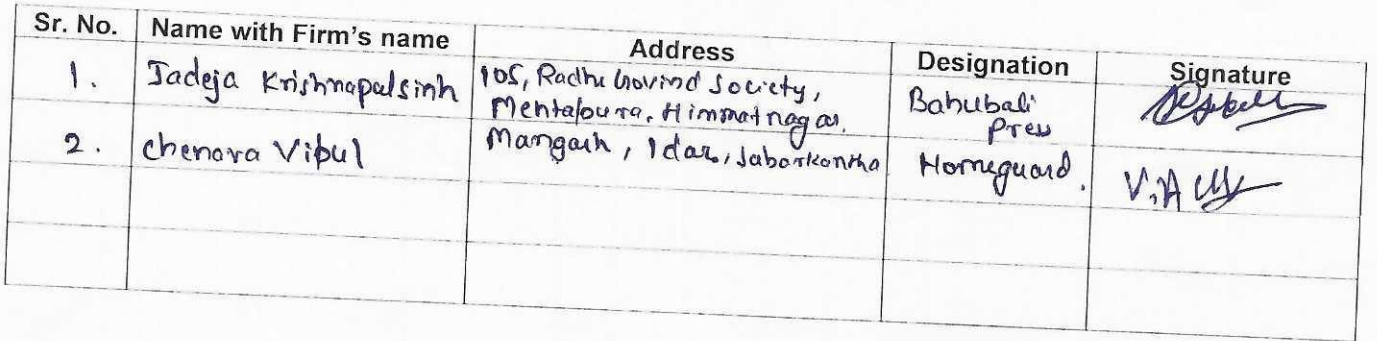 Sr. No. Name with Firm's name Address Designation Signature
1. Jadeja Krishnapalsinh 105, Radhe Govind Society, Bahubali
Mehtapura, Himmatnagar. Press
2. Chenava Vipul Mangadh, Idar, Sabarkantha Homeguard.